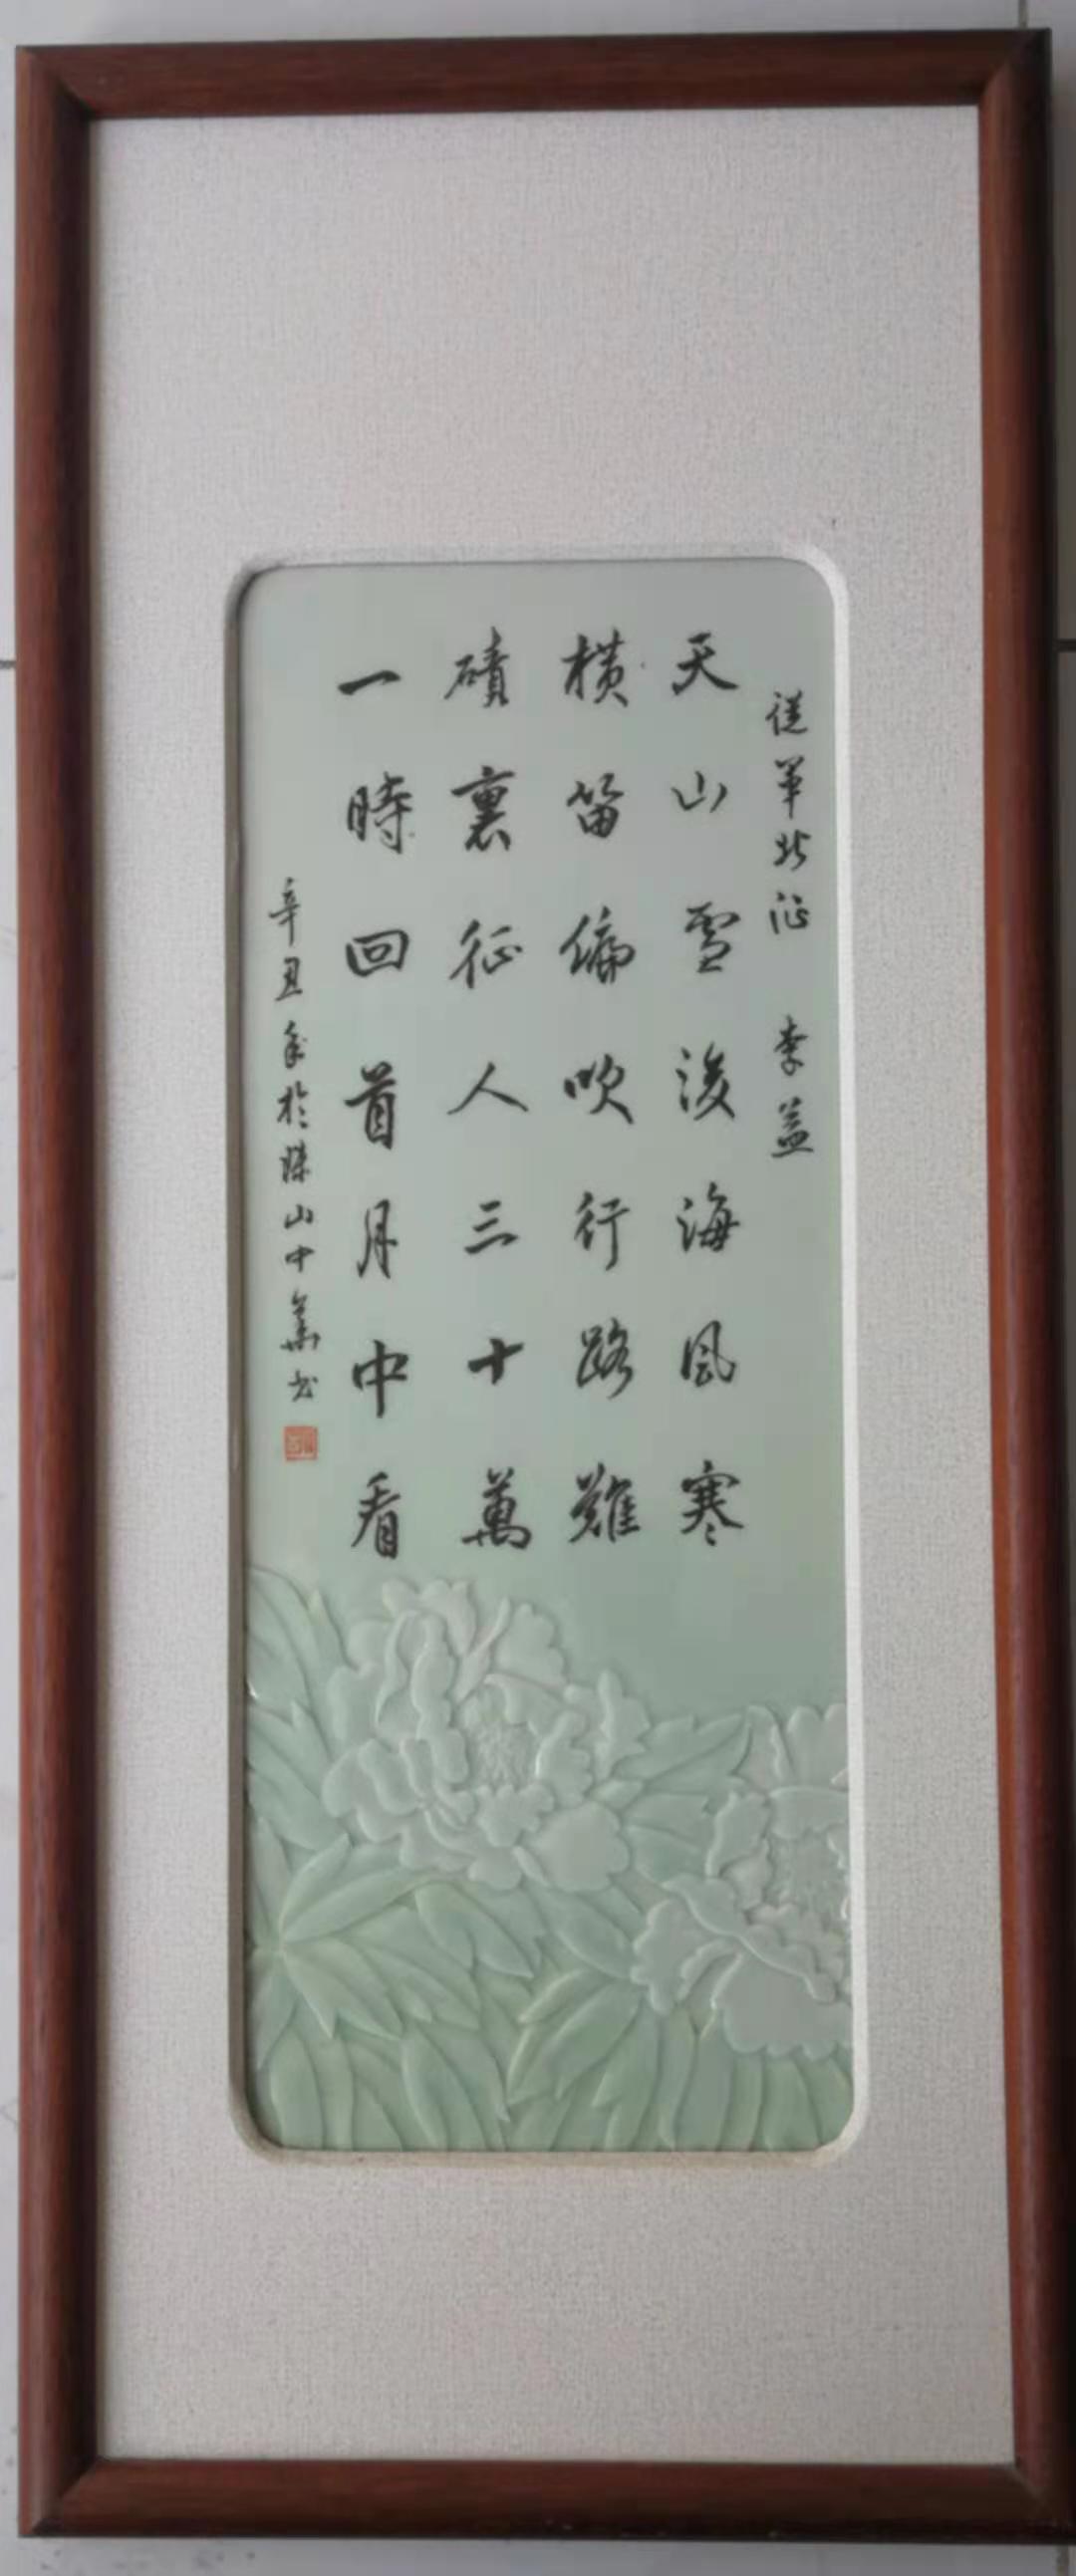 從軍北征 李益
天山雪後海風寒
橫笛偏吹行路難
磧裏征人三十萬
一時回首月中看
辛丑年於珠山中萬書